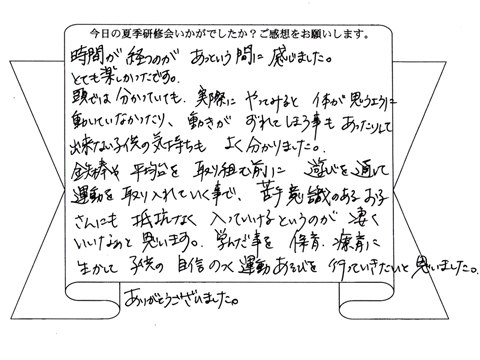 今日の夏季研修会いかがでしたか？ご感想をお願いします。
時間が経つのがあっという間に感じました。
とても楽しかったです。
頭では分かっていても、実際にやってみると体が思うように
動いていなかったり、動きがずれてしまう事もあったりして
出来ない子供の気持ちもよく分かりました。
鉄棒や平均台を取り組む前に遊びを通して
運動を取り入れていく事で、苦手意識のあるお子
さんにも抵抗なく入っていけるというのが凄く
いいなぁと思います。学んだ事を保育、療育に
生かして子供の自信のつく運動あそびを行っていきたいと思いました。
ありがとうございました。